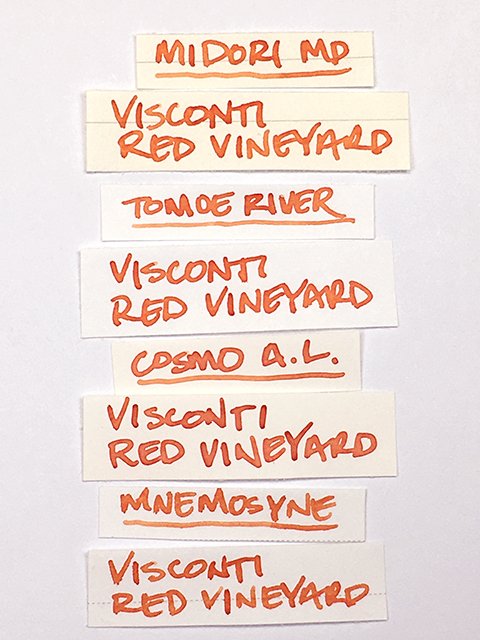 MIDORI MD
VISCONTI
RED VINEYARD
TOMOE RIVER
VISCONTI
RED VINEYARD
COSMO A.L.
VISCONTI
RED VINEYARD
MNEMOSYNE
VISCONTI
RED VINEYARD